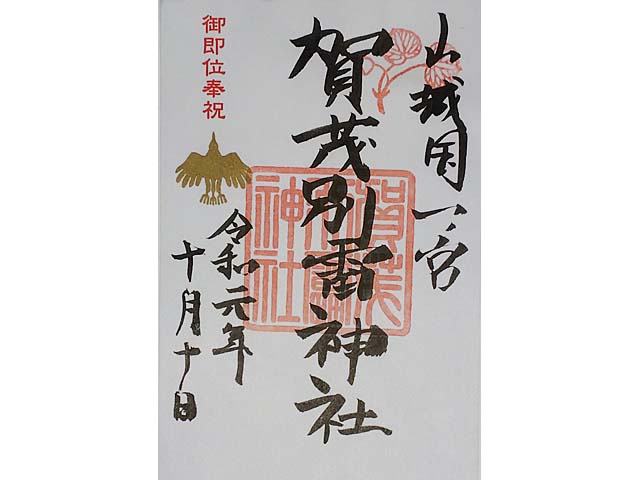 山城国一宮
賀茂別雷神社
御即位奉祝
令和元年
十月十日
賀茂別雷神社